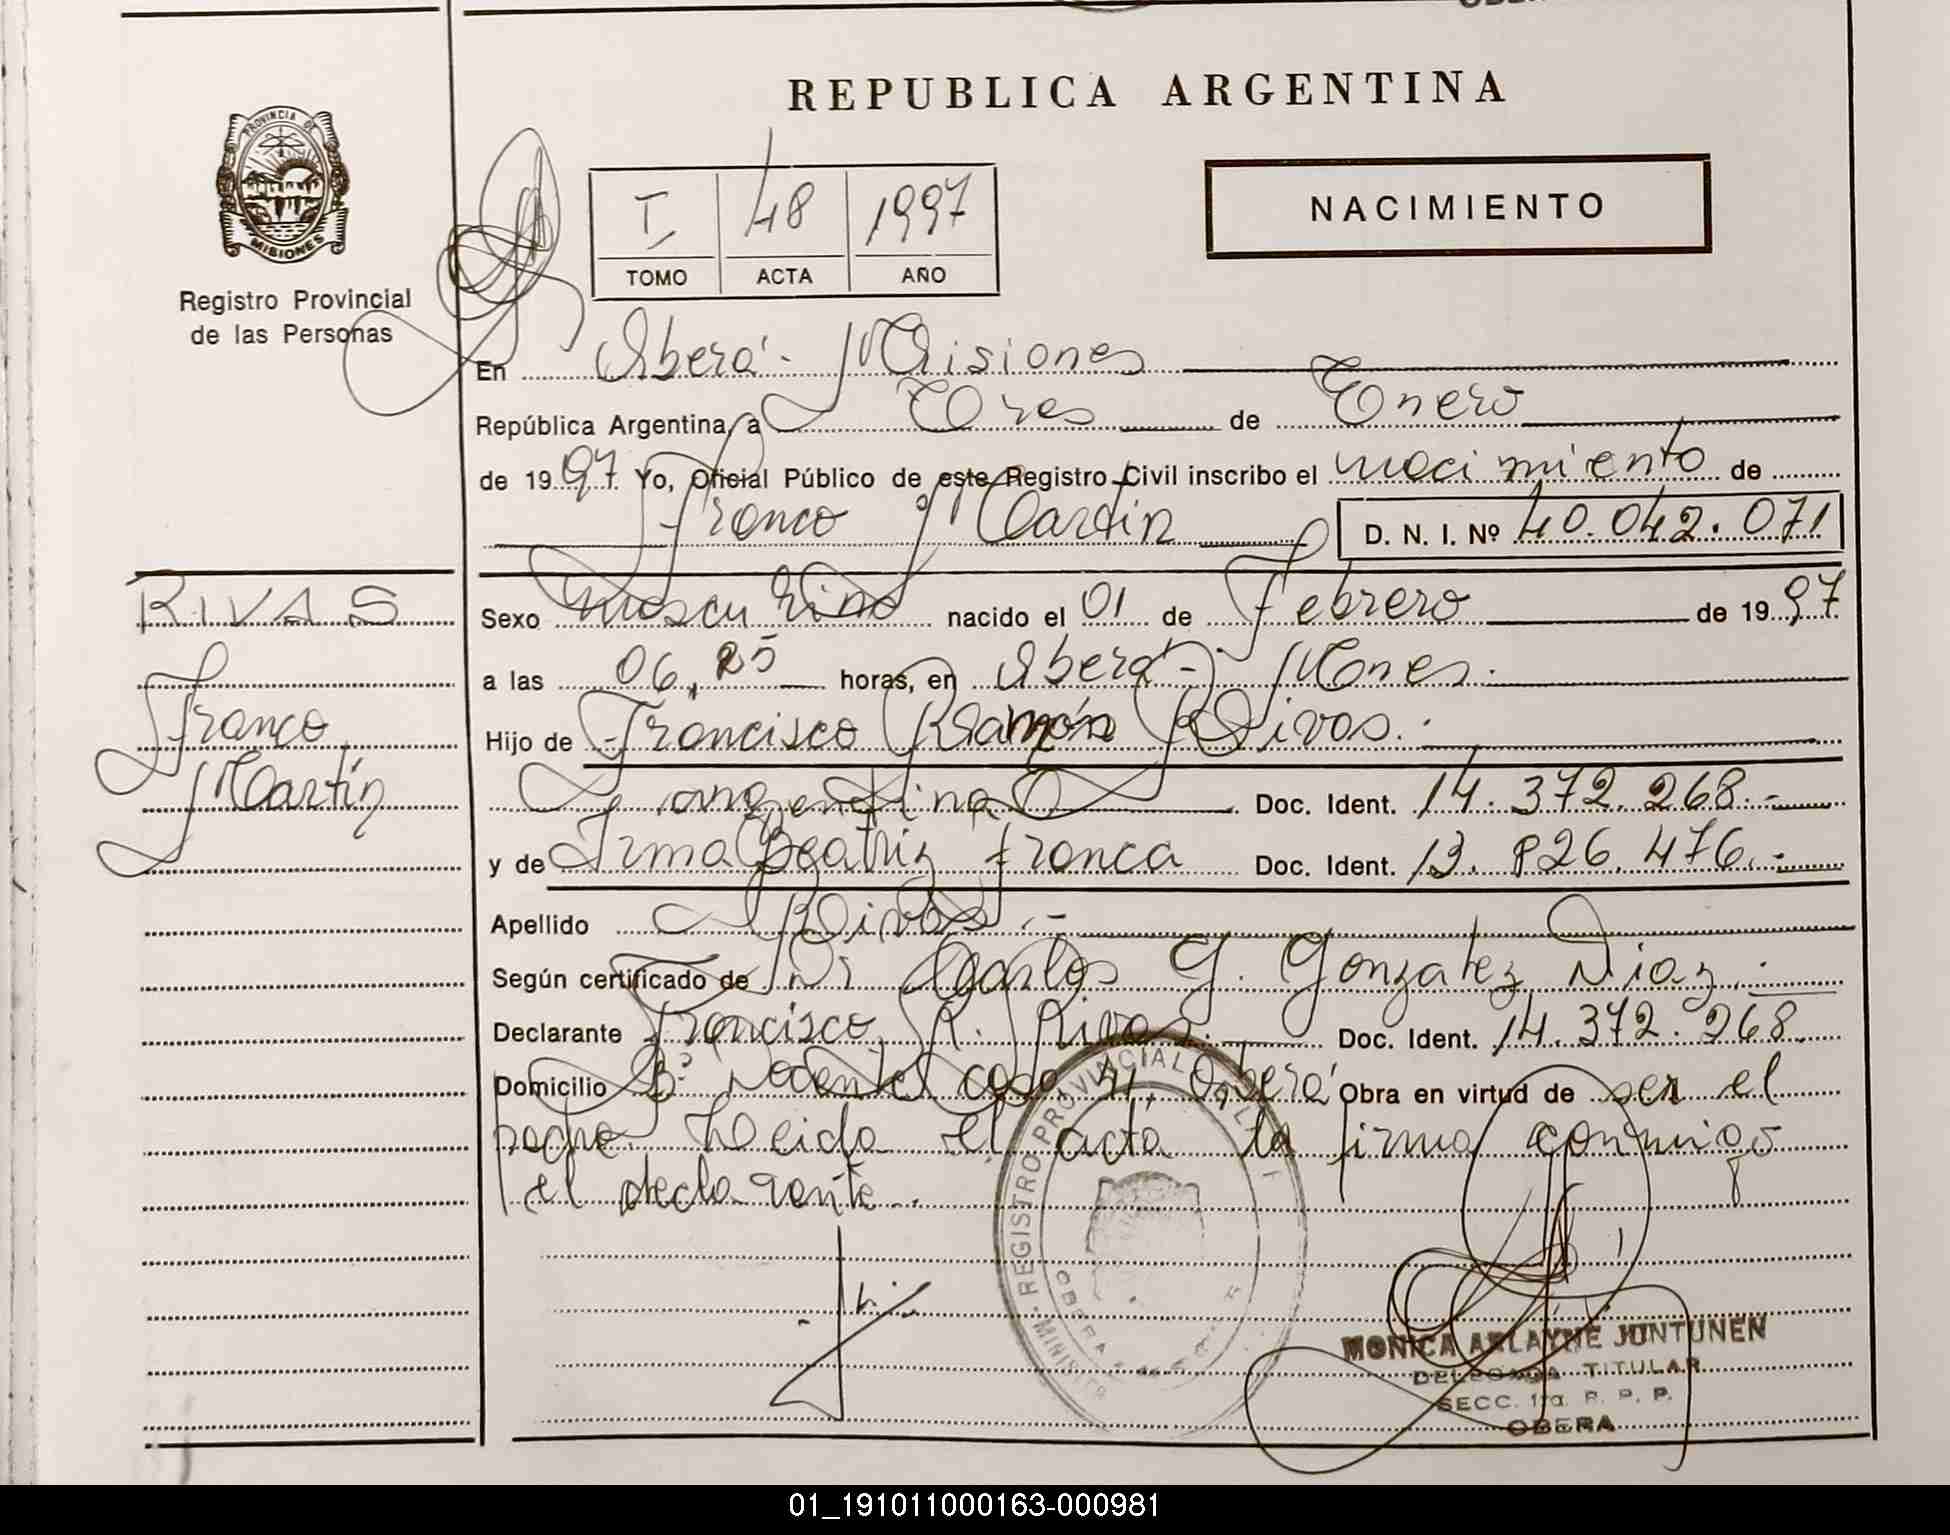 REPUBLICA ARGENTINA
PROVINCIA DE
MISIONES
Registro Provincial
de las Personas
I 48 1997
TOMO ACTA AÑO
NACIMIENTO
En Oberá - Misiones
República Argentina, a Tres de Enero
de 1997 Yo, Oficial Público de este Registro Civil inscribo el nacimiento de
Franco Martín D. N. I. Nº 40.042.071
RIVAS
Franco
Martín
Sexo masculino nacido el 01 de Febrero de 1997
a las 06,25 horas, en Oberá - Mnes.
Hijo de Francisco Ramón Rivas.
argentina Doc. Ident. 14.372.268.-
y de Irma Beatriz Franca Doc. Ident. 13.826.476.-
Apellido Rivas.-
Según certificado de Dr Carlos G. Gonzalez Diaz.
Declarante Francisco R. Rivas. Doc. Ident. 14.372.268.
Domicilio Bº Docente, casa 41, Oberá Obra en virtud de ser el
padre. Leida el acta la firma conmigo
el declarante.
REGISTRO PROVINCIAL
OBERA
MONICA ARLAYNE JUNTUNEN
DELEGADA TITULAR
SECC. 1ra. R. P. P.
OBERA
01_191011000163-000981